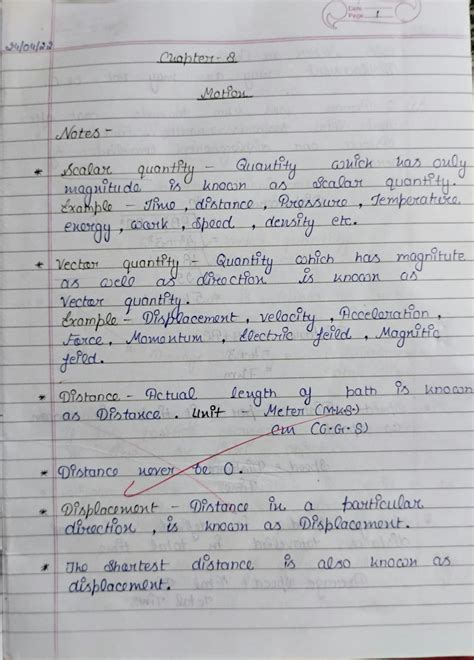 Date
Page 1
24/04/22
Chapter - 8
Motion
Notes -
* Scalar quantity - Quantity which has only
magnitude is known as scalar quantity.
Example - Time, distance, Pressure, Temperature,
energy, work, speed, density etc.
* Vector quantity - Quantity which has magnitute
as well as direction is known as
Vector quantity.
Example - Displacement, velocity, Acceleration,
Force, Momentum, Electric feild, Magnitic
feild.
* Distance - Actual length of path is known
as Distance. Unit - Meter (M.K.S.)
cm (C.G.S)
* Distance never be 0.
* Displacement - Distance in a particular
direction, is known as Displacement.
* The shartest distance is also known as
displacement.